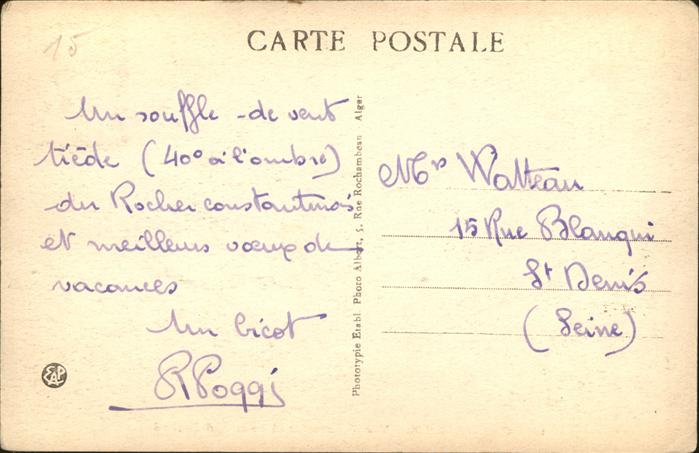 15
CARTE POSTALE
Un souffle de vent
tiède (40° à l'ombre)
du Rocher constantinois
et meilleurs voeux de
vacances
Un bicot
R Poggi
Phototypie Etabl. Photo Albert, 5, Rue Rochambeau Alger
EAP
Mrs Watteau
15 Rue Blanqui
St Denis
(Seine)